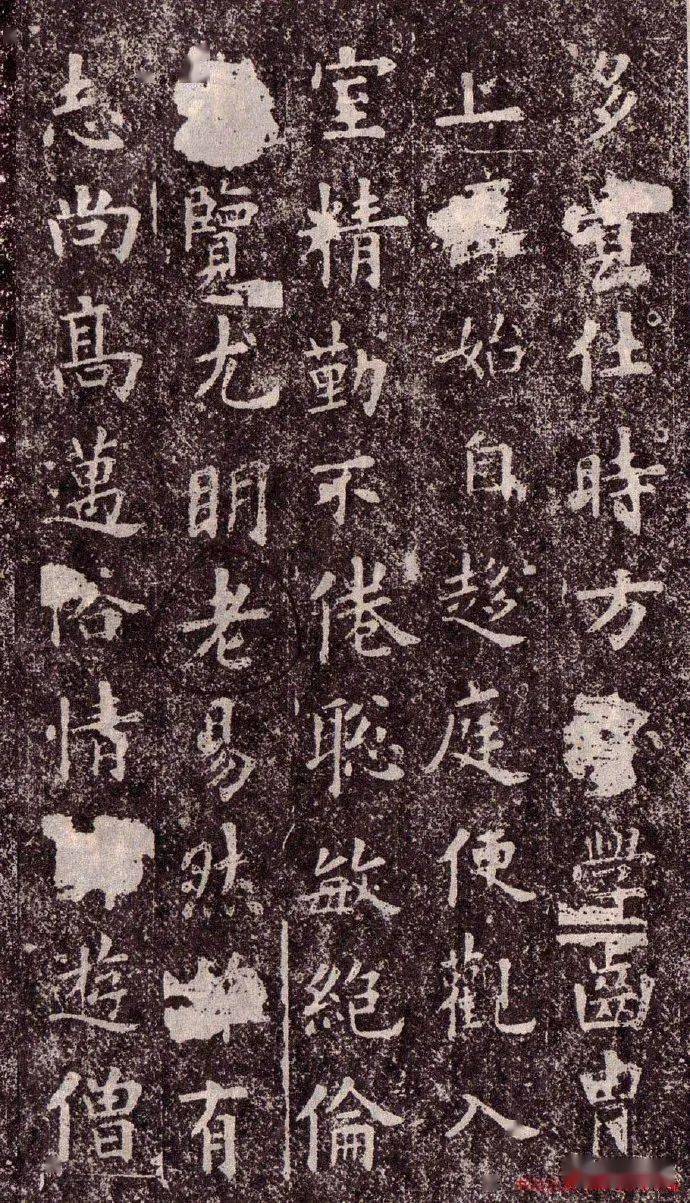 涉宦仕時方學齒胄
上始自趍庭便觀入
室精勤不倦聡敏絕倫
覽尤明老易然有
志尚高邁俗情遊僧